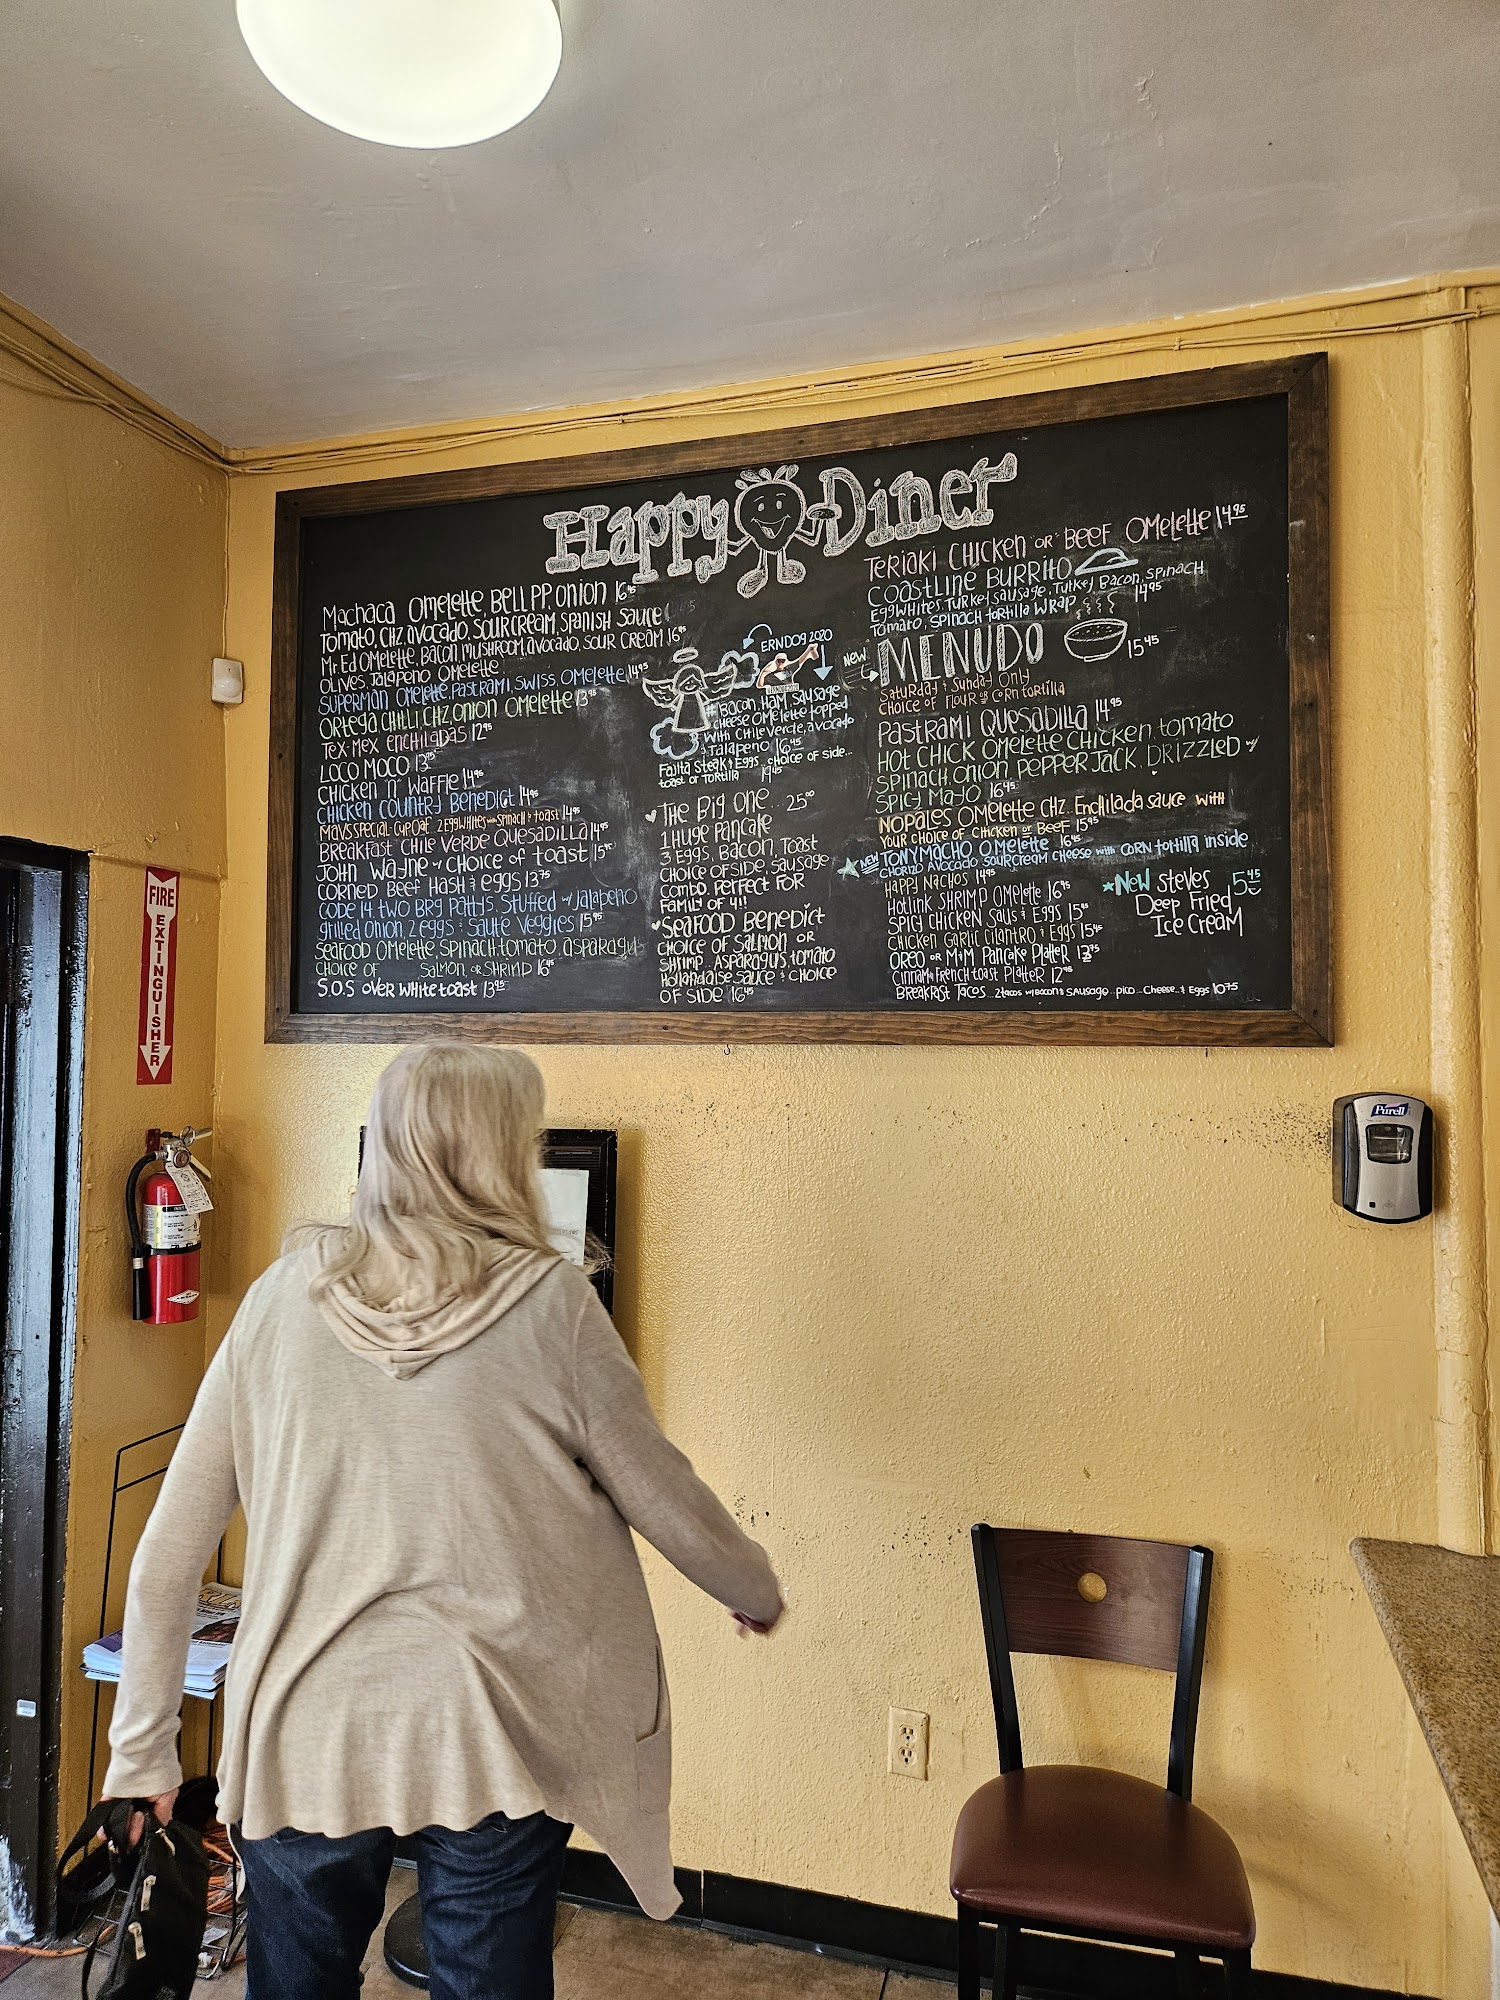 Happy Diner
Machaca Omelette, Bell PP, onion 16⁴⁵
Tomato, CHZ, avocado, sour cream, Spanish Sauce
Mr. Ed Omelette, Bacon mushroom, avocado, sour cream 16⁹⁵
Olives, Jalapeno Omelette
Superman Omelette, Pastrami, Swiss, Omelette 14⁹⁵
Ortega Chilli CHZ, onion Omelette 13⁹⁵
Tex-Mex enchiladas 12⁹⁵
Loco Moco 13⁷⁵
Chicken "n" Waffle 14⁹⁵
Chicken Country Benedict 14⁹⁵
Mays Special Cup Oaf 2 Egg Whites with Spinach & toast 14⁹⁵
Breakfast Chile Verde Quesadilla 14⁹⁵
John Wayne w/ choice of toast
Corned Beef Hash & eggs 13⁷⁵
Code 14, two BRG Pattys, Stuffed w/ Jalapeño
grilled onion, 2 eggs & Saute Veggies 15⁹⁵
Seafood Omelette, Spinach, tomato, asparagus
choice of Salmon or Shrimp 16⁴⁵
S.O.S over white toast 13⁹⁵
ERNDOG 2020
# Bacon, Ham, Sausage
cheese omelette topped
with chile verde, avocado
& Jalapeño 16⁴⁵
Fajita steak & Eggs choice of side...
toast or tortilla 19⁴⁵
The Big One... 25⁰⁰
1 Huge Pancake
3 Eggs, Bacon, Toast
choice of side, sausage
combo. Perfect for
Family of 4!!
Seafood Benedict
choice of Salmon or
Shrimp, Asparagus, tomato
Hollandaise sauce & choice
of side 16⁴⁵
Teriaki Chicken or Beef Omelette 14⁹⁵
Coastline Burrito
Egg whites, Turkey sausage, Turkey Bacon, spinach
Tomato, Spinach tortilla wrap 14⁹⁵
New
MENUDO 15⁴⁵
Saturday & Sunday Only
choice of flour or corn tortilla
Pastrami Quesadilla 14⁹⁵
Hot Chick Omelette Chicken tomato
Spinach, onion pepper Jack, Drizzled w/
Spicy Mayo 16⁴⁵
Nopales Omelette CHZ. Enchilada sauce with
your choice of Chicken or Beef 15⁹⁵
New Tonymacho Omelette 16⁴⁵
Chorizo Avocado Sour cream Cheese with Corn tortilla inside
Happy Nachos 14⁹⁵
Hotlink Shrimp Omelette 16⁹⁵
Spicy Chicken Saus & Eggs 15⁴⁵
Chicken Garlic Cilantro & Eggs 15⁴⁵
Oreo or M&M Pancake Platter
Cinnamon French toast Platter 12⁹⁵
Breakfast Tacos... 2 tacos w/ Bacon & Sausage... pico... Cheese... & Eggs 10⁷⁵
New Steves 5⁴⁵
Deep Fried
Ice Cream
FIRE
EXTINGUISHER
Purell